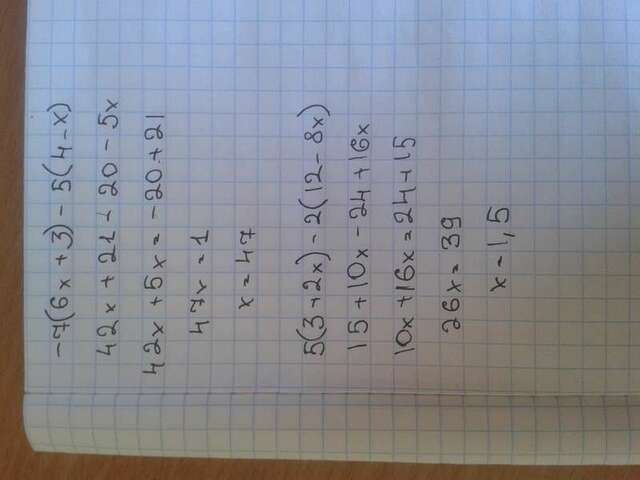 -7(6x+3)-5(4-x)
42x+21+20-5x
42x+5x=-20+21
47x=1
x=47
5(3+2x)-2(12-8x)
15+10x-24+16x
10x+16x=24+15
26x=39
x-1,5